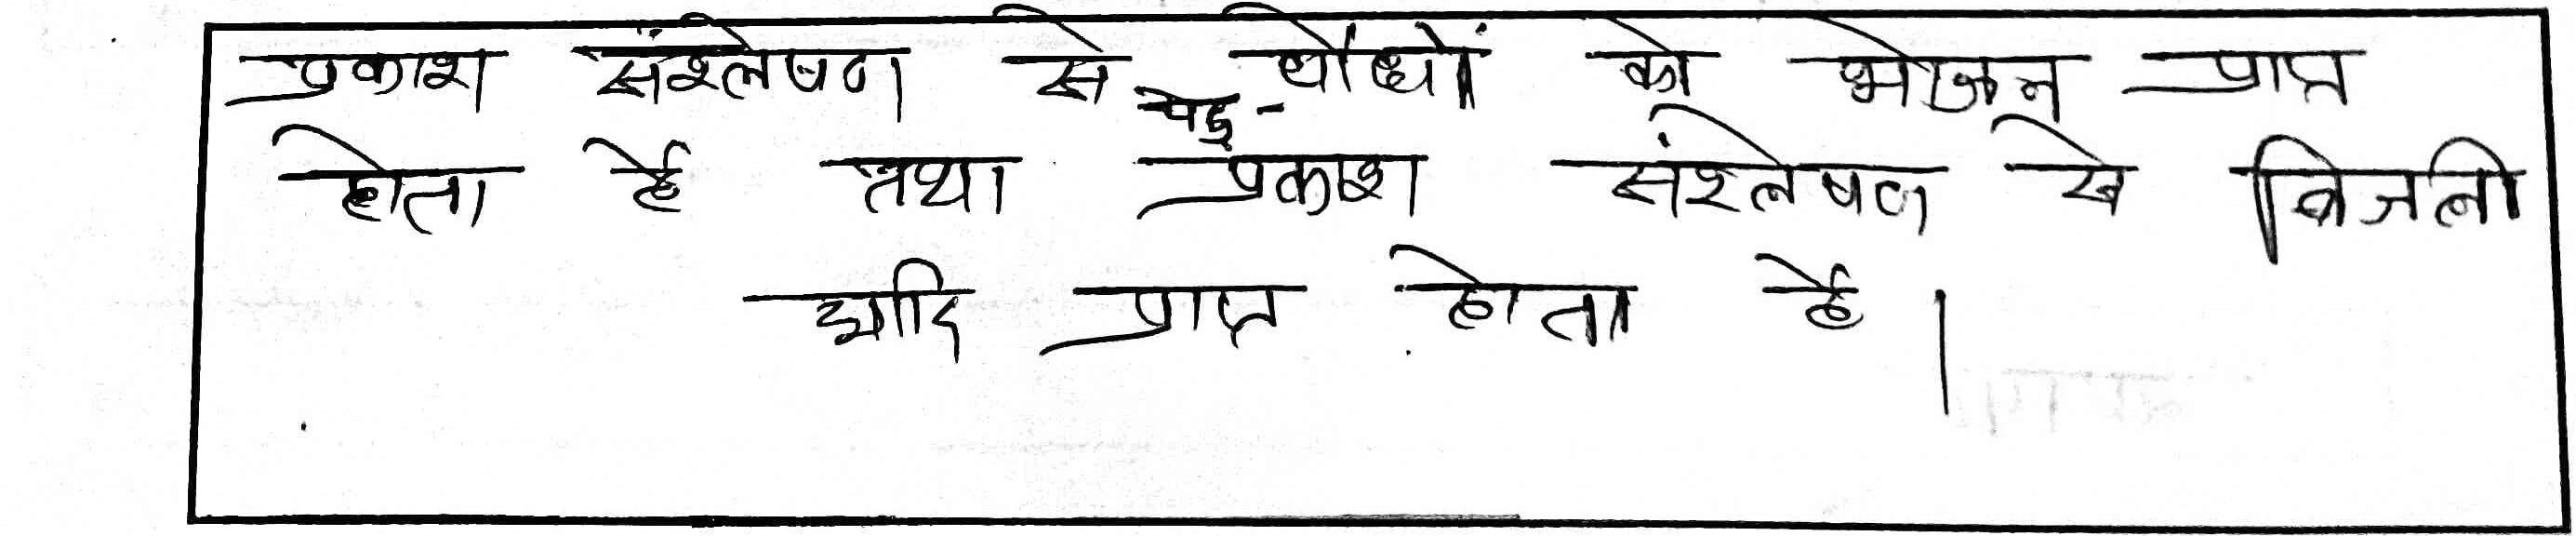 प्रकाश संश्लेषण से पेड़-पौधों को भोजन प्राप्त
होता है तथा प्रकाश संश्लेषण से बिजली
आदि प्राप्त होता है।